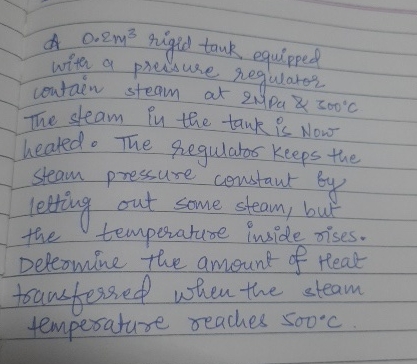 A 0.2m³ rigid tank equipped
with a pressure regulator
contain steam at 2MPa & 300°C
The steam in the tank is Now
heated. The regulator keeps the
steam pressure constant by
letting out some steam, but
the temperature inside rises.
Determine the amount of Heat
transferred when the steam
temperature reaches 500°C.